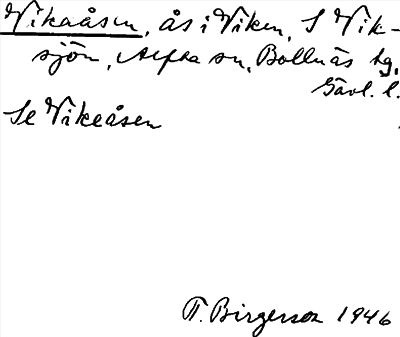 Vikaåsen, ås i Viken, S Vik-
sjön, Alfta sn, Bollnäs tg,
Gävl. l.
Se Vikeåsen
T. Birgerson 1946